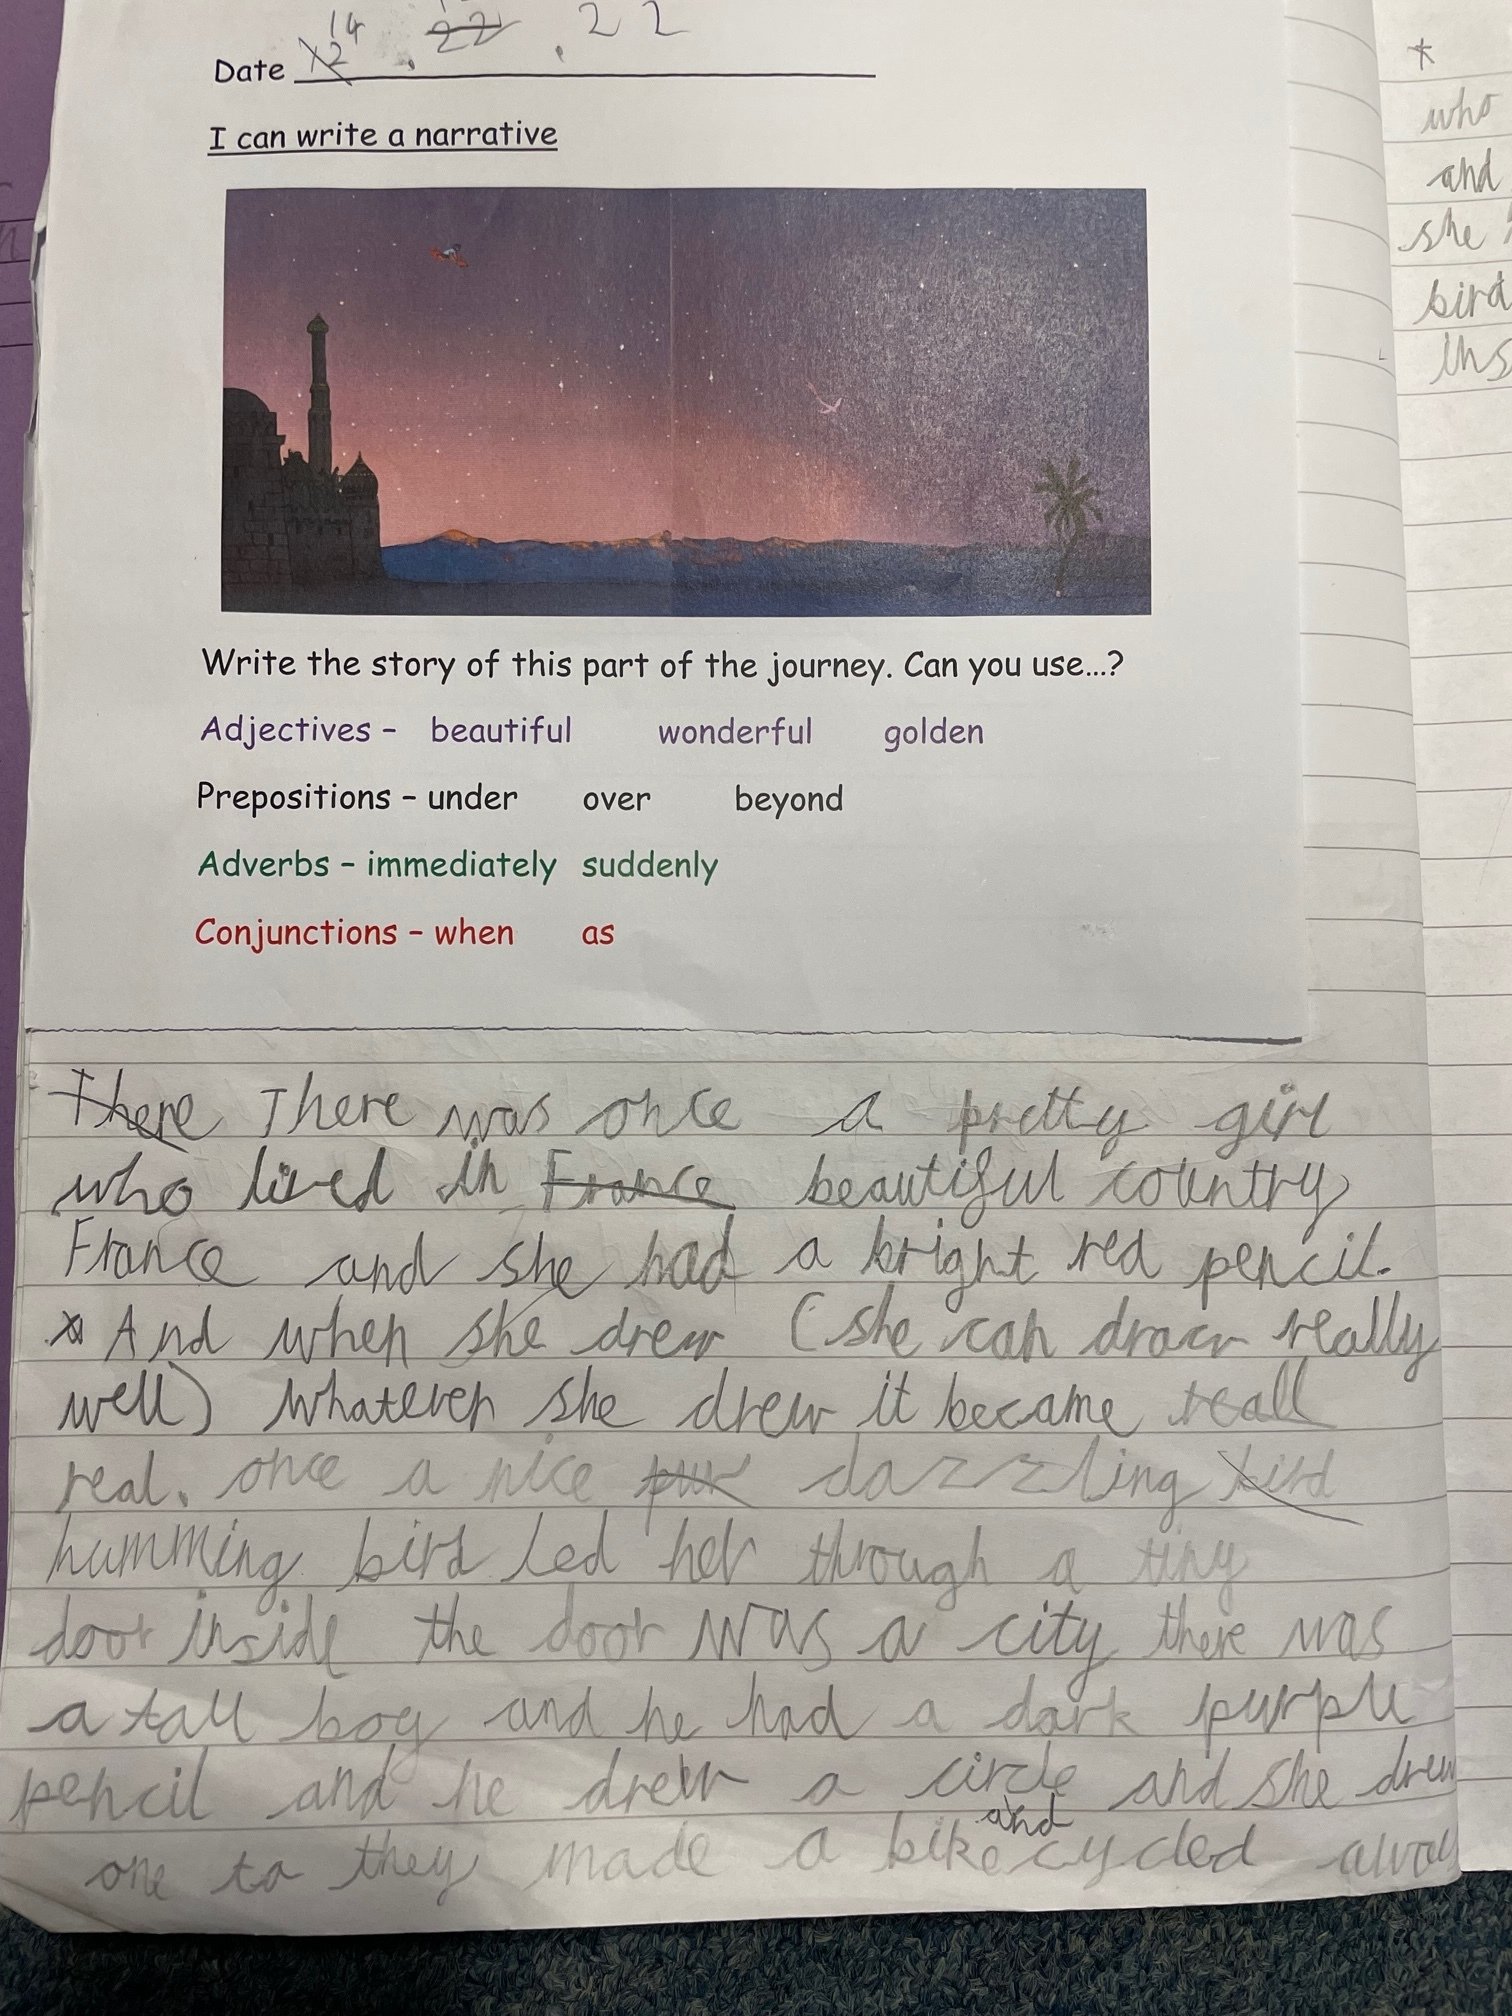 14
Date 12 . 22 . 22
I can write a narrative
Write the story of this part of the journey. Can you use...?
Adjectives – beautiful wonderful golden
Prepositions – under over beyond
Adverbs – immediately suddenly
Conjunctions – when as
There There was once a pretty girl
who lived in France beautiful country
France and she had a bright red pencil.
And when she drew (she can draw really
well) whatever she drew it became reall
real. once a nice dazzling bird
humming bird led her through a tiny
door inside the door was a city there was
a tall boy and he had a dark purple
pencil and he drew a circle and she drew
and
one to they made a bike cycled away
*
who
and
she
bird